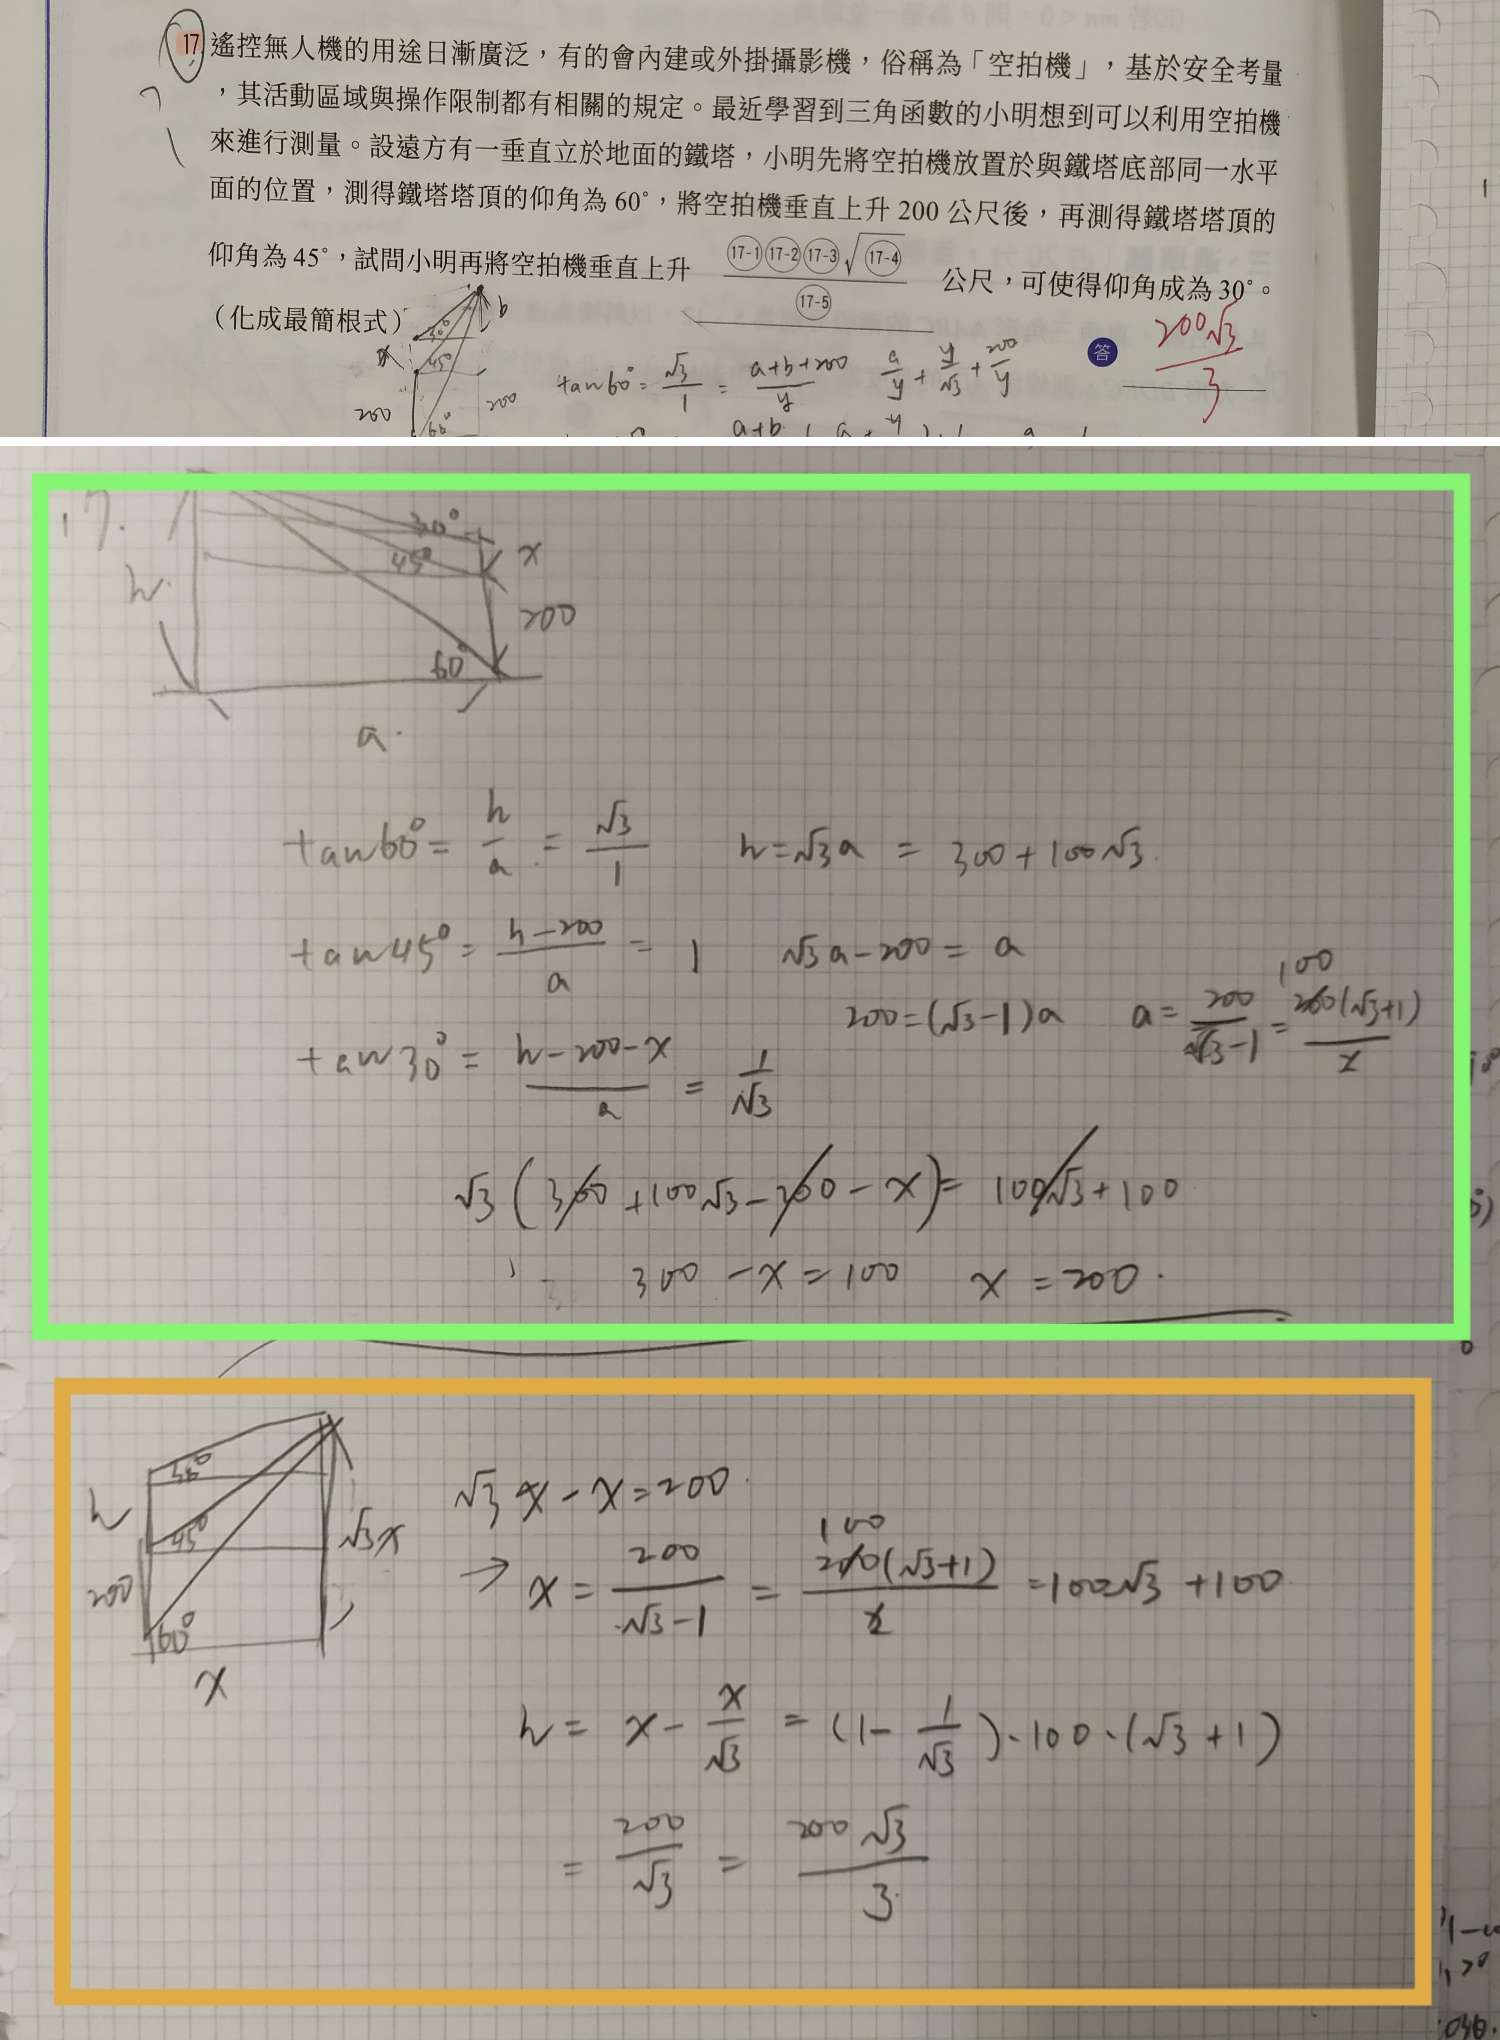 17 遙控無人機的用途日漸廣泛，有的會內建或外掛攝影機，俗稱為「空拍機」，基於安全考量
，其活動區域與操作限制都有相關的規定。最近學習到三角函數的小明想到可以利用空拍機
來進行測量。設遠方有一垂直立於地面的鐵塔，小明先將空拍機放置於與鐵塔底部同一水平
面的位置，測得鐵塔塔頂的仰角為60°，將空拍機垂直上升200公尺後，再測得鐵塔塔頂的
仰角為45°，試問小明再將空拍機垂直上升 (17-1)(17-2)(17-3)√(17-4) / (17-5) 公尺，可使得仰角成為30°。
（化成最簡根式）
答 200√3 / 3
b
30°
45°
200 200
60°
tan60° = √3/1 = (a+b+200)/y a/y + y/√3 + 200/y
a+b
17.
30°
45° x
h. 200
60°
a.
tan60° = h/a = √3/1 h=√3a = 300+100√3.
tan45° = (h-200)/a = 1 √3a-200 = a
200=(√3-1)a a = 200/(√3-1) = 100 200(√3+1)/2
tan30° = (h-200-x)/a = 1/√3
√3(300+100√3-200-x) = 100√3+100
300-x=100 x=200.
30°
h 45° √3x
200
60°
x
√3x-x=200.
→ x = 200/(√3-1) = 100 200(√3+1)/2 =100√3+100
h = x - x/√3 = (1-1/√3)·100·(√3+1)
= 200/√3 = 200√3/3